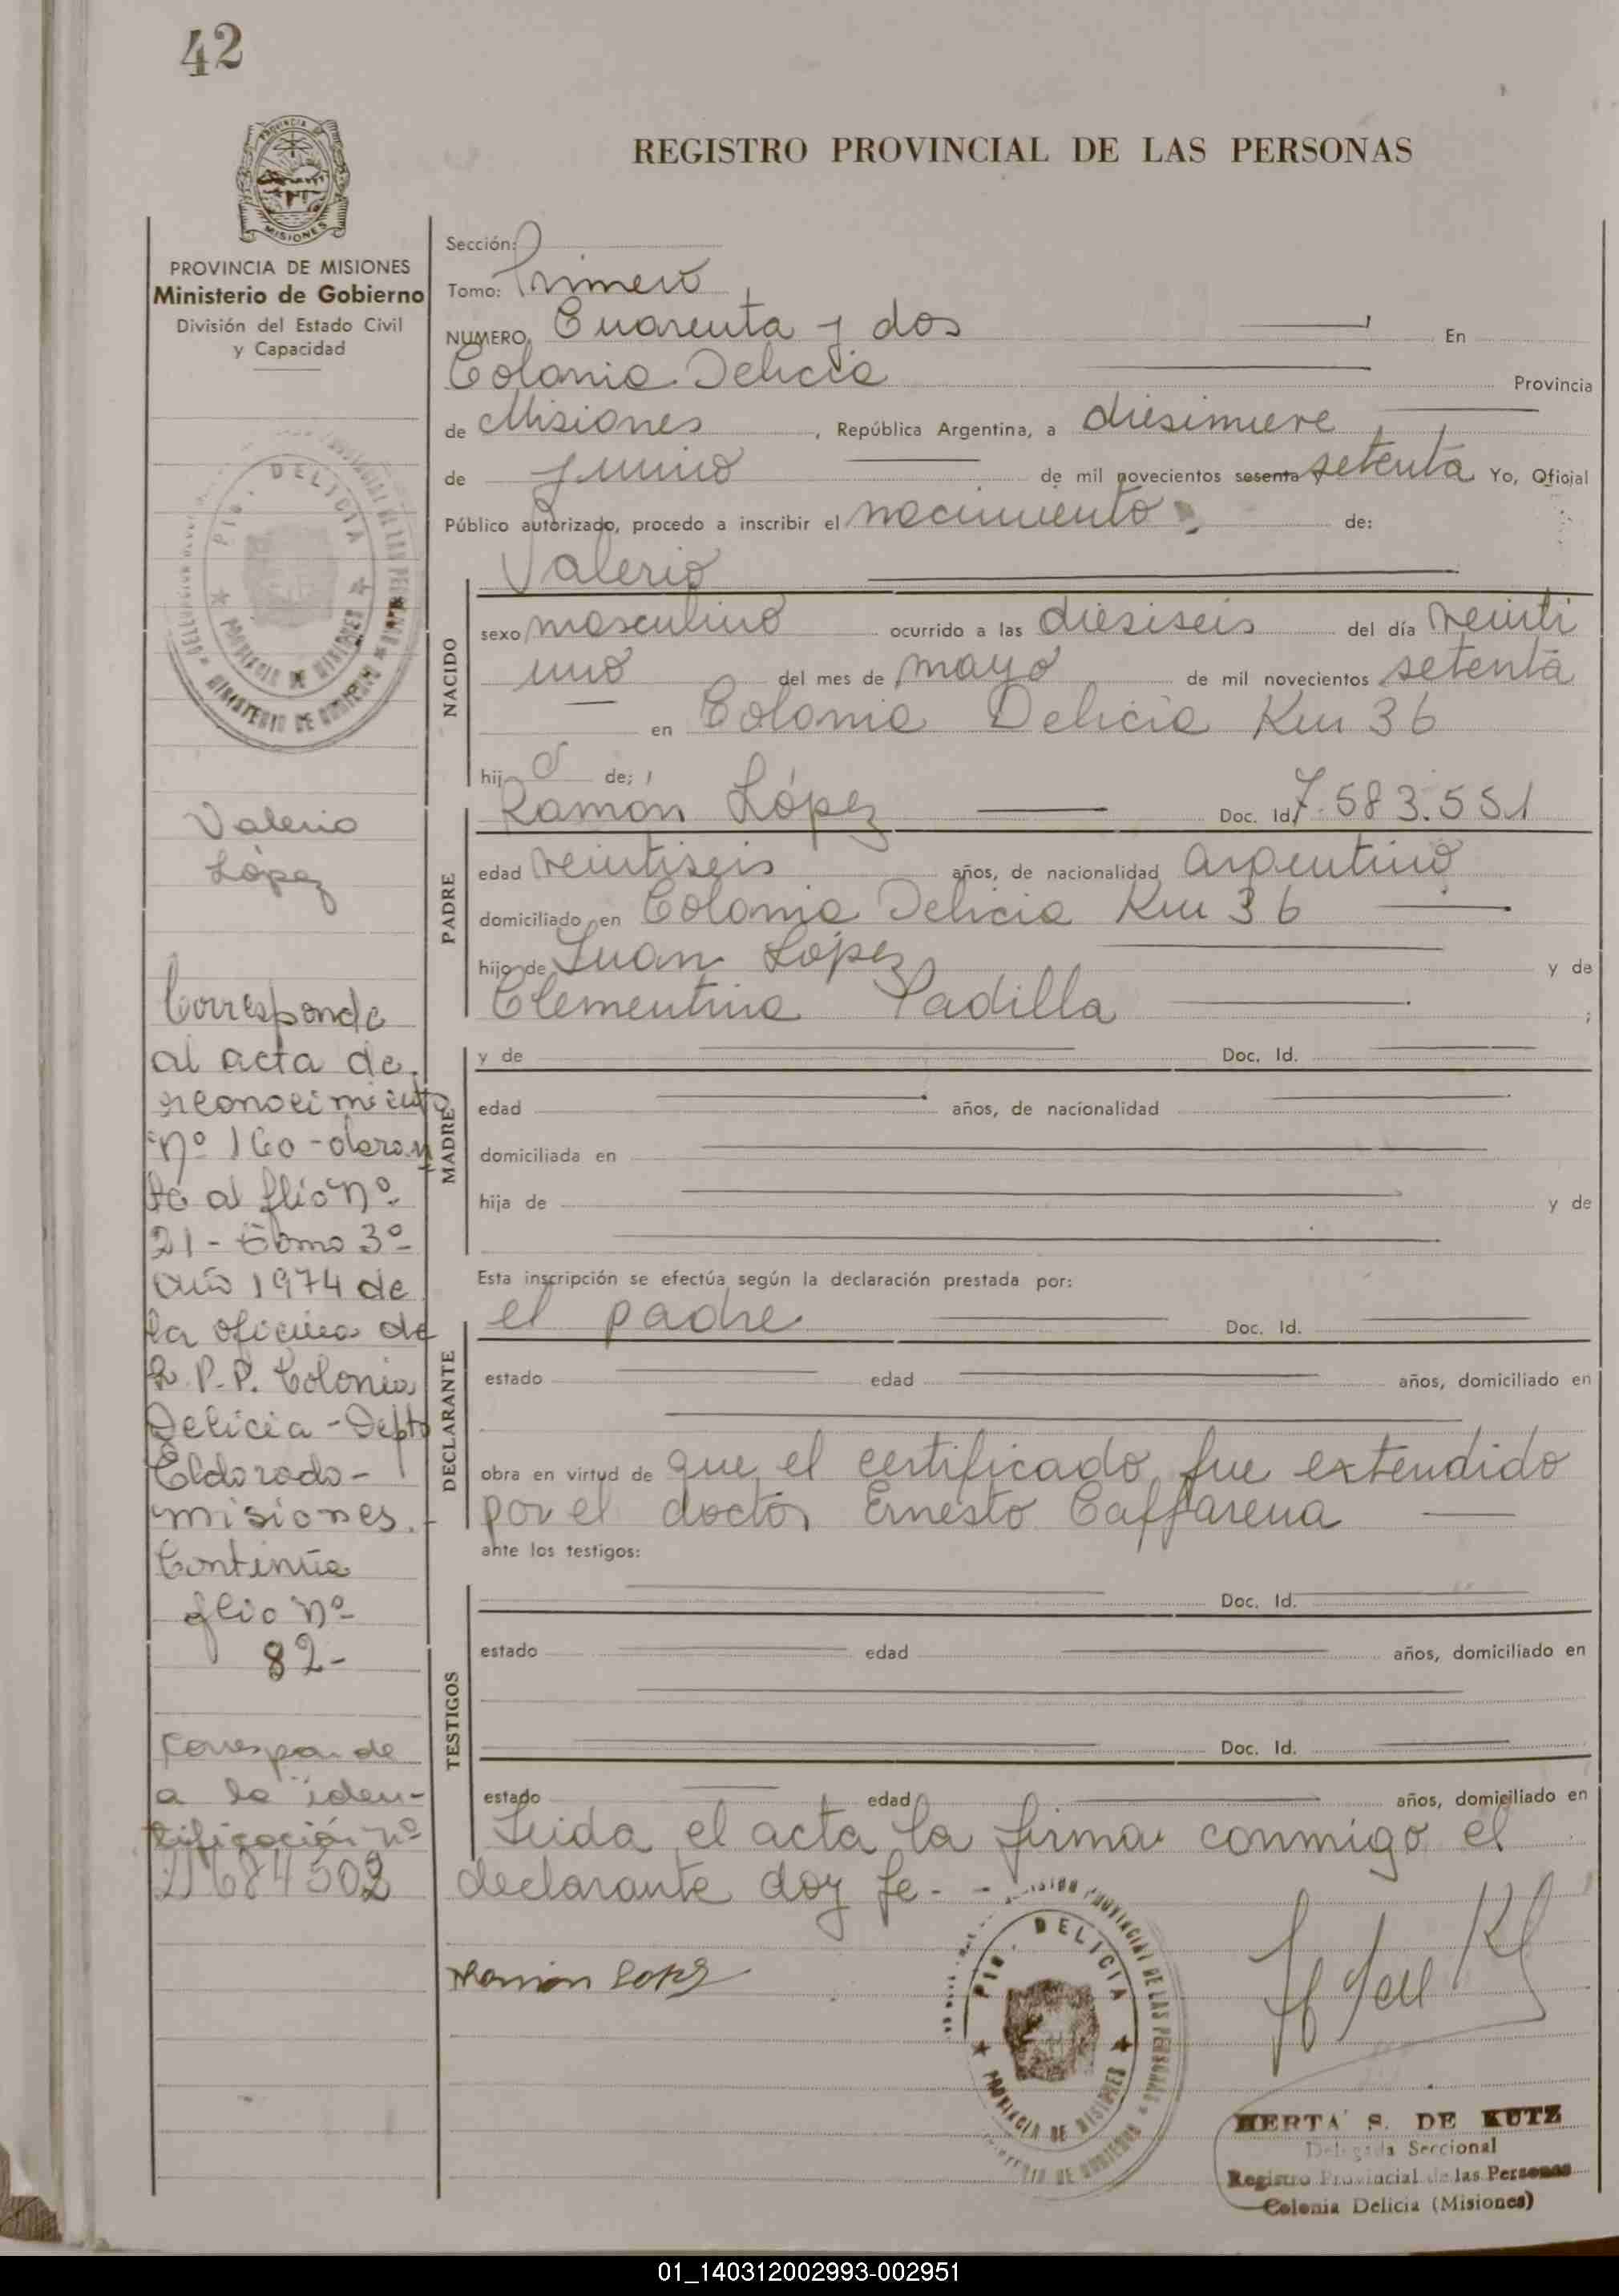 42
REGISTRO PROVINCIAL DE LAS PERSONAS
PROVINCIA DE MISIONES
Ministerio de Gobierno
División del Estado Civil
y Capacidad
Sección:
Tomo: Primero
NUMERO Cuarenta y dos En
Colonia Delicia Provincia
de Misiones, República Argentina, a diesinueve
de Junio de mil novecientos sesenta y setenta Yo, Oficial
Público autorizado, procedo a inscribir el nacimiento de:
Valerio
NACIDO
sexo masculino ocurrido a las diesiseis del día veinti
uno del mes de mayo de mil novecientos setenta
en Colonia Delicia Km 36
hijo de:
PADRE
Ramón López Doc. Id. 7.583.551
edad veintiseis años, de nacionalidad argentino
domiciliado en Colonia Delicia Km 36
hijo de Juan López y de
Clementina Padilla ;
MADRE
y de Doc. Id.
edad años, de nacionalidad
domiciliada en
hija de y de
Esta inscripción se efectúa según la declaración prestada por:
DECLARANTE
el padre Doc. Id.
estado edad años, domiciliado en
obra en virtud de que el certificado fue extendido
por el doctor Ernesto Caffarena
ante los testigos:
TESTIGOS
Doc. Id.
estado edad años, domiciliado en
Doc. Id.
estado edad años, domiciliado en
Leida el acta la firma conmigo el
declarante doy fe.-
Ramon Lopez
DELICIA
PROVINCIA DE MISIONES
HERTA S. DE KUTZ
Delegada Seccional
Registro Provincial de las Personas
Colonia Delicia (Misiones)
DELICIA
PROVINCIA DE MISIONES
MINISTERIO DE GOBIERNO
Valerio
López
Corresponde
al acta de
reconocimiento
nº 160 - obran
te al flio nº
21 - Tomo 3º
año 1974 de
la oficina de
R.P.P. Colonia
Delicia - Depto
Eldorado -
misiones.-
Continúa
flio nº
82-
Corresponde
a la iden-
tificación nº
21684502
01_140312002993-002951